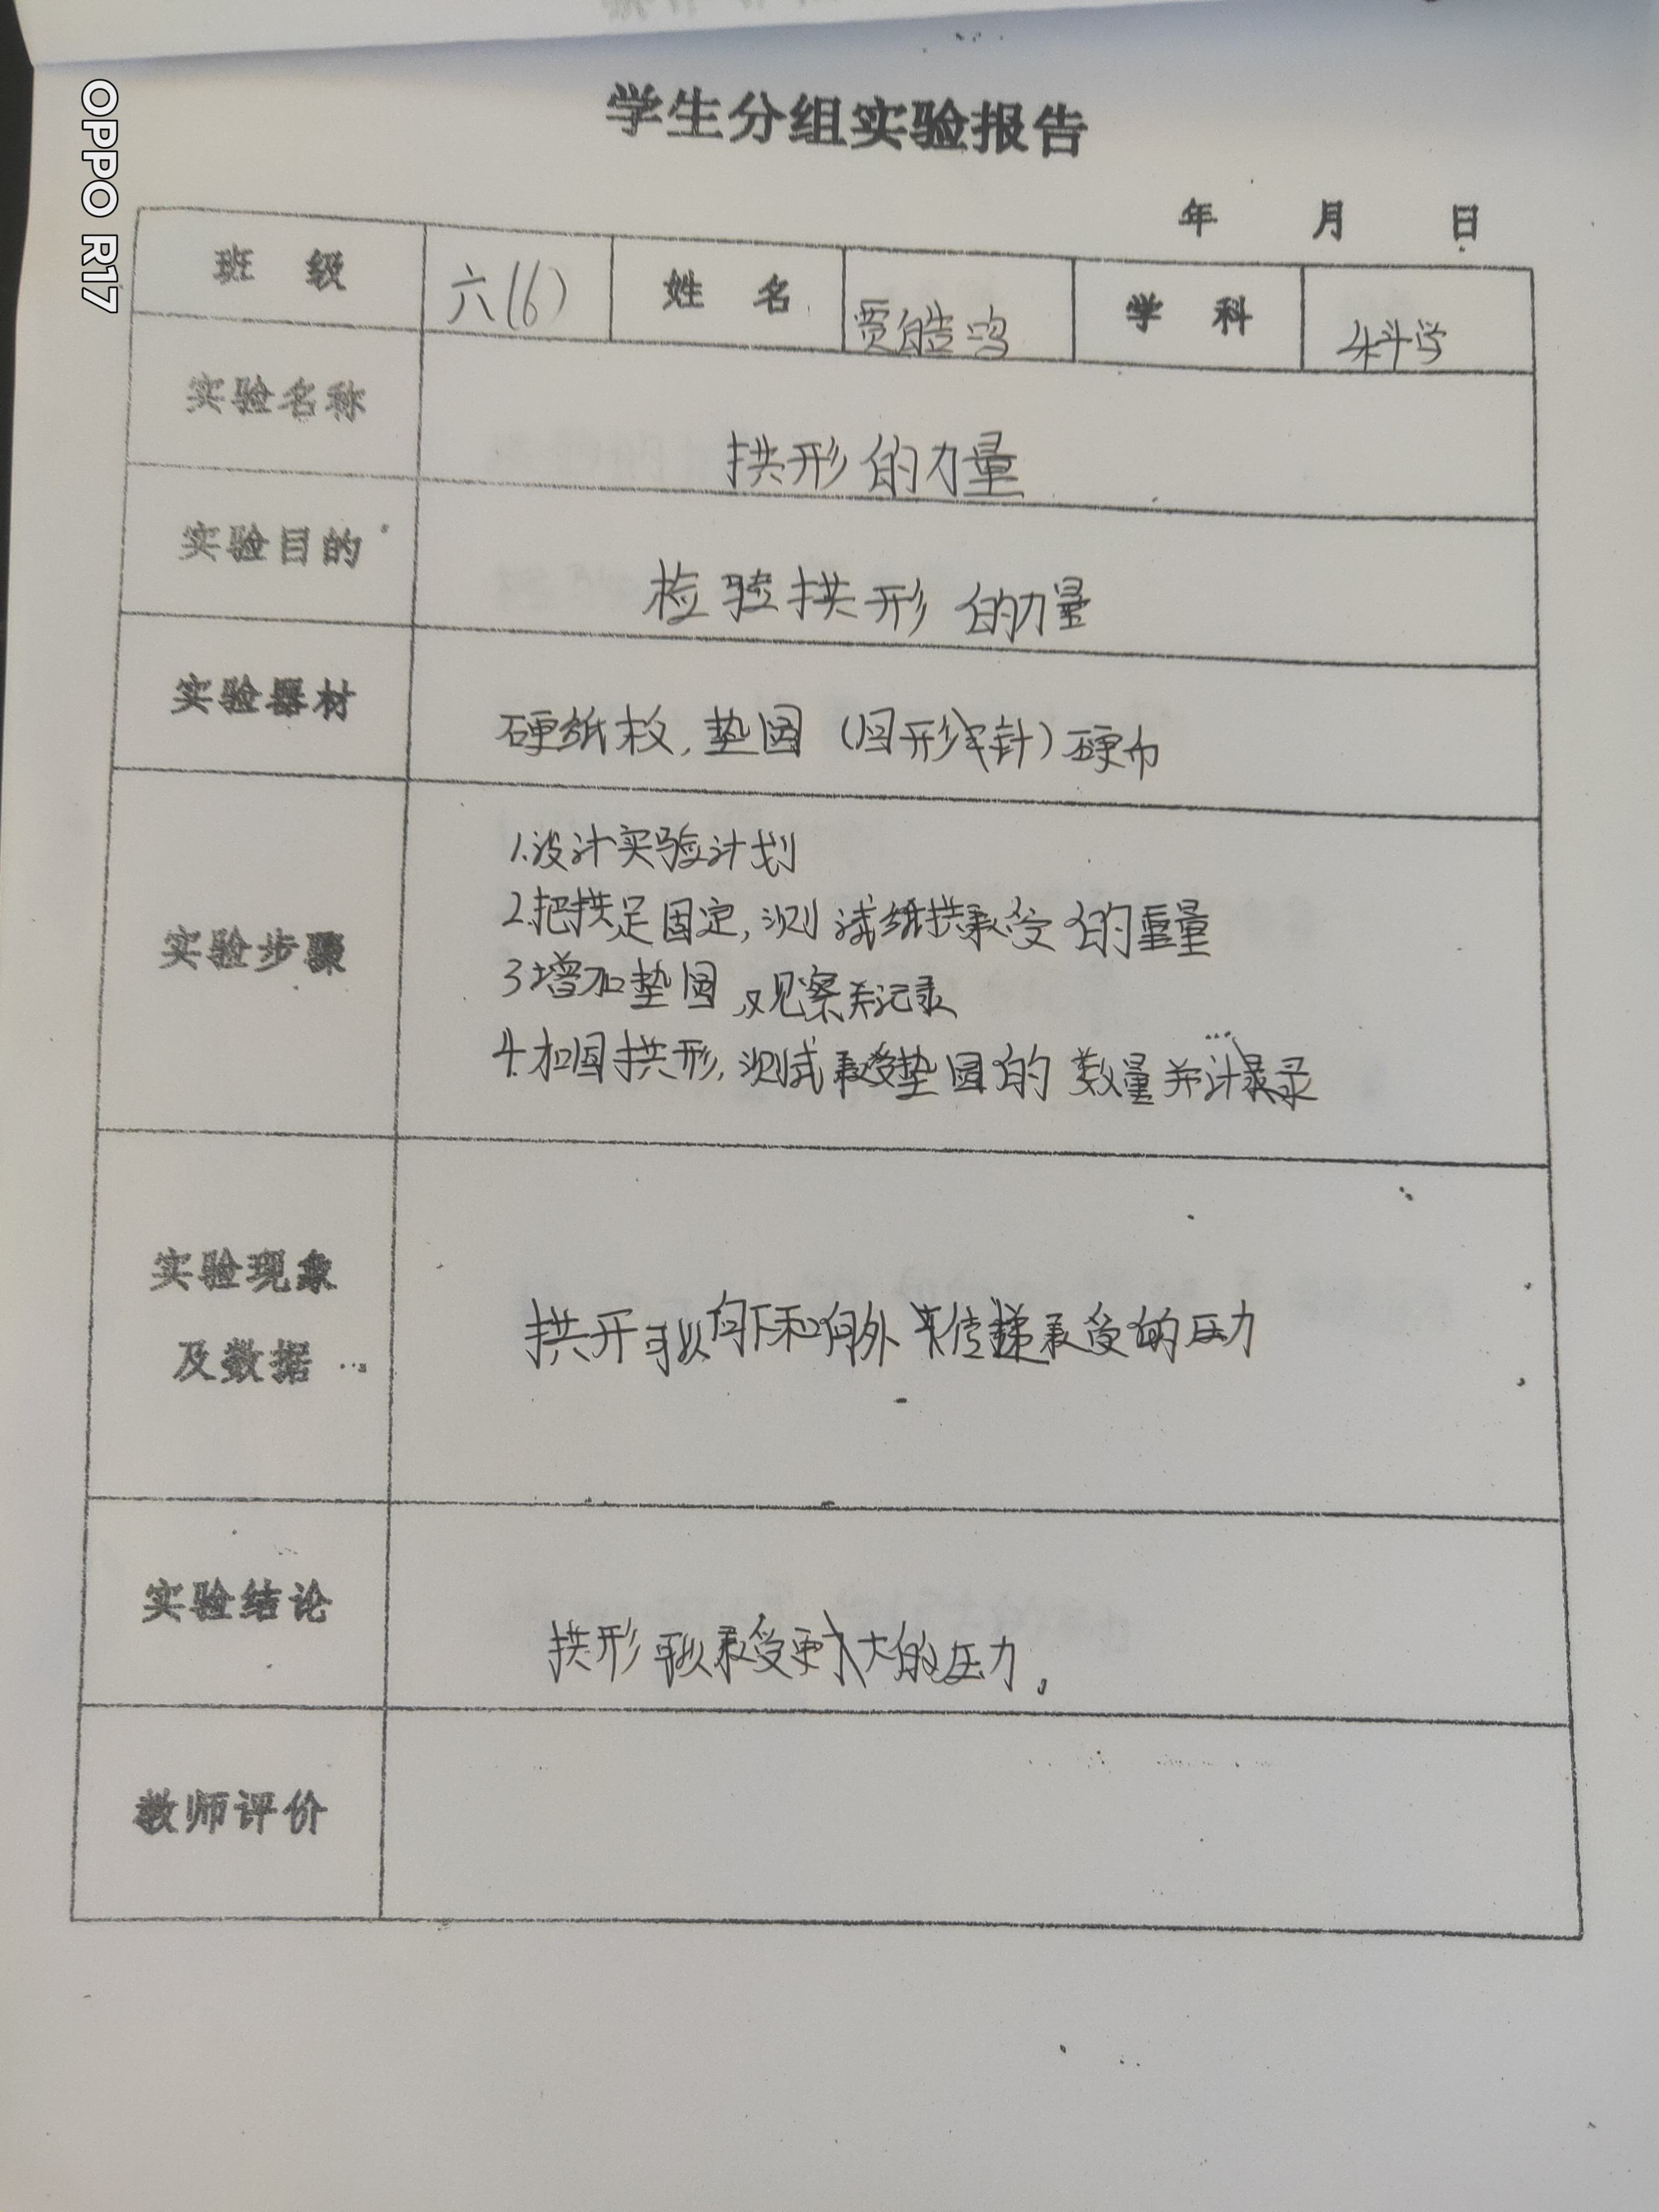 学生分组实验报告
年 月 日
班 级 六(6) 姓 名 贾皓鸣 学 科 科学
实验名称 拱形的力量
实验目的 检验拱形的力量
实验器材 硬纸板,垫圈(回形针)硬币
实验步骤
1.设计实验计划
2.把拱足固定,测试纸拱承受的重量
3增加垫圈,观察并记录
4.加固拱形,测试承受垫圈的数量并记录
实验现象
及数据
拱形可以向下和向外来传递承受的压力
实验结论 拱形可以承受更大的压力。
教师评价
OPPO R17